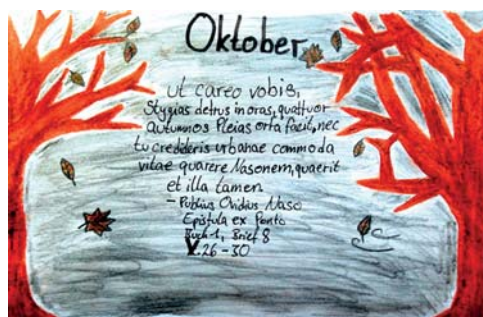 Oktober
ut careo vobis,
Stygias detrus in oras, quattuor
autumnos Pleias orta facit, nec
tu credderis urbanae commoda
vitae quarere Nasonem, quaerit
et illa tamen
- Publius Ovidius Naso
Epistula ex Ponto
Buch 1, Brief 8
V. 26-30